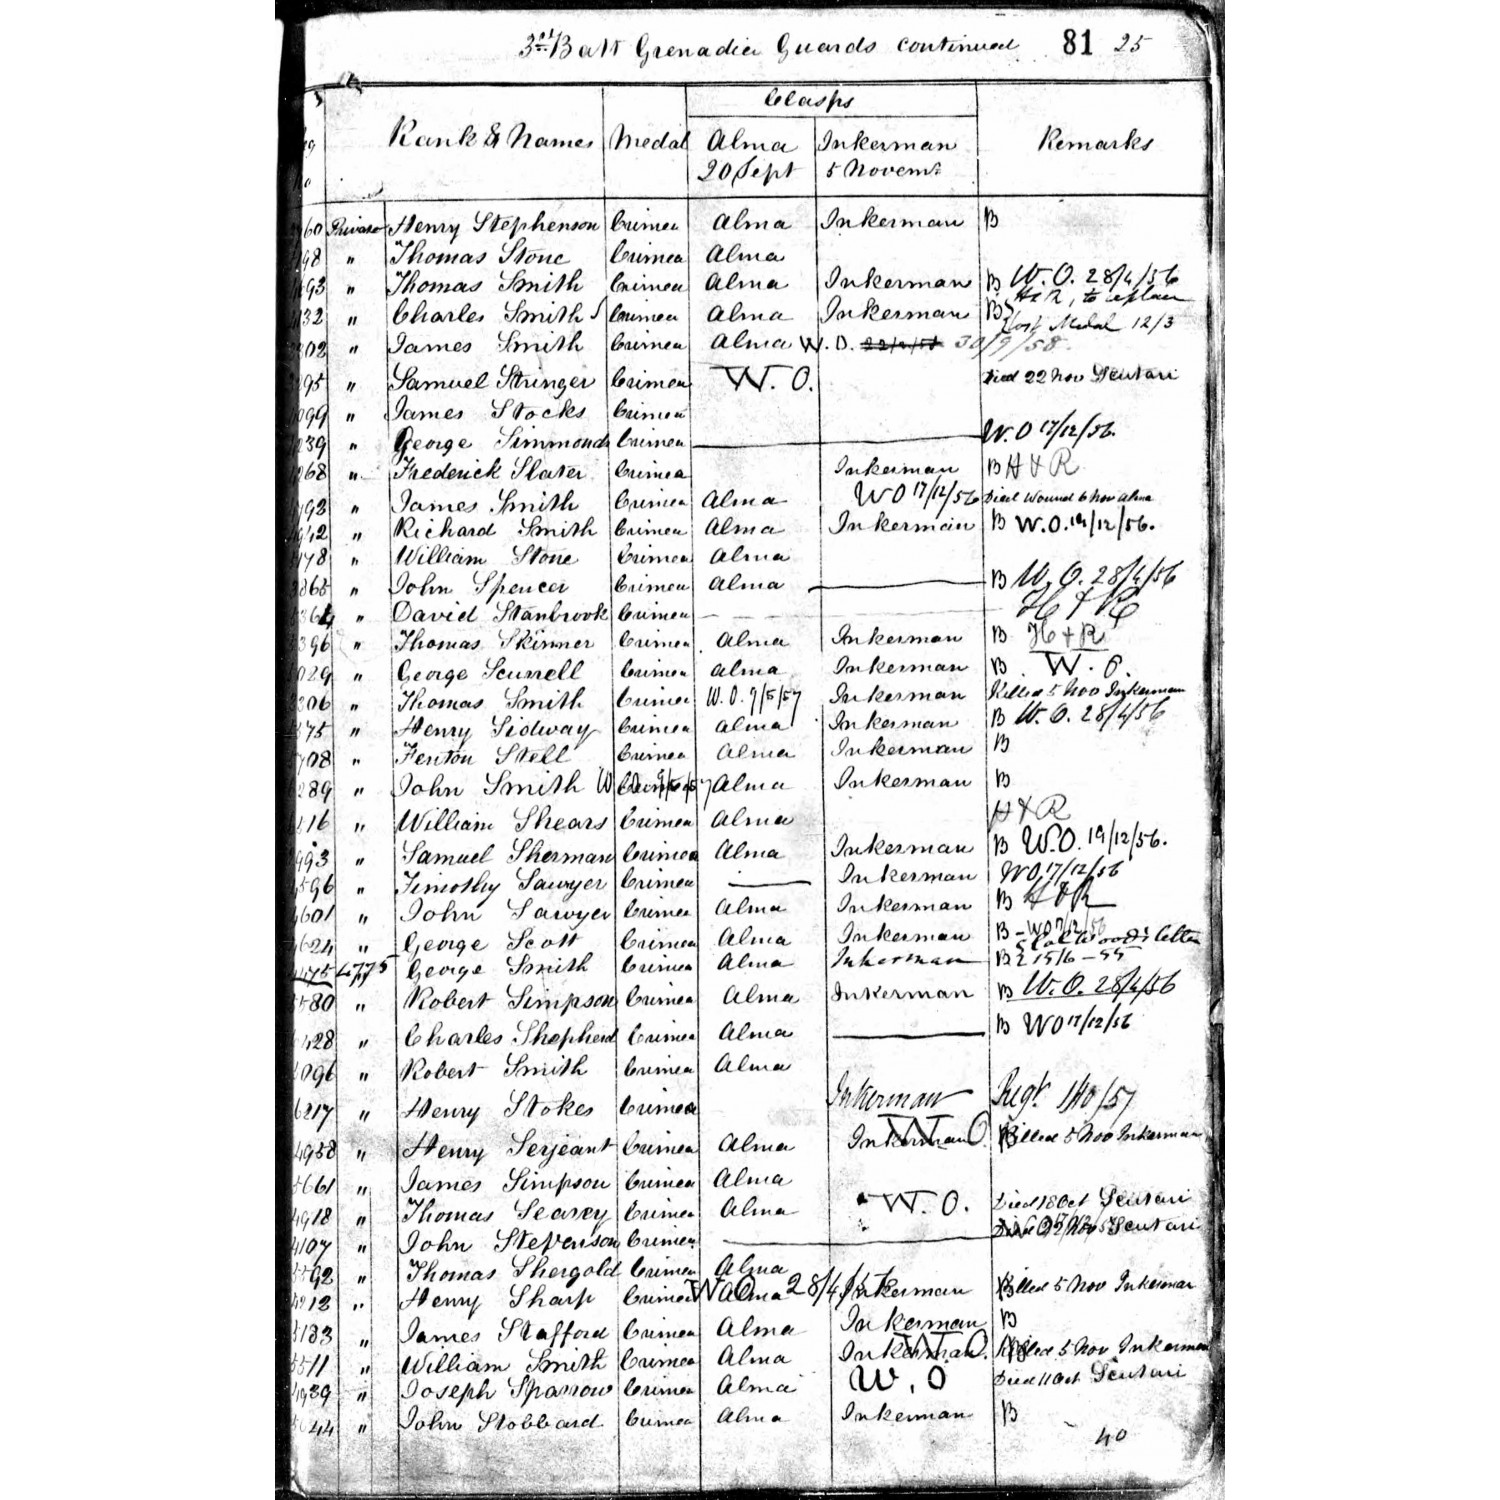 3rd Batt Grenadier Guards continued 81 25
Clasps
Rank & Names Medal Alma Inkerman Remarks
20 Sept 5 Novemr
60 Private Henry Stephenson Crimea Alma Inkerman B
98 " Thomas Stone Crimea Alma
93 " Thomas Smith Crimea Alma Inkerman B W.O. 28/4/56
H&R, to replace
32 " Charles Smith Crimea Alma Inkerman B
lost Medal 12/3
302 " James Smith Crimea Alma W.O. 30/9/58
295 " Samuel Stringer Crimea W.O. Died 22 Nov Scutari
099 " James Stocks Crimea
239 " George Simmonds Crimea W.O 17/12/56.
068 " Frederick Slater Crimea Inkerman B H & R
193 " James Smith Crimea Alma WO 17/12/56 Died Wound 6 Nov Alma
942 " Richard Smith Crimea Alma Inkerman B W.O. 19/12/56.
178 " William Stone Crimea Alma
365 " John Spencer Crimea Alma B W.O. 28/4/56
364 " David Stanbrook Crimea H & R
396 " Thomas Skinner Crimea Alma Inkerman B H & R
029 " George Scurrell Crimea Alma Inkerman B W.O.
206 " Thomas Smith Crimea W.O. 9/5/57 Inkerman Killed 5 Nov Inkerman
575 " Henry Sidway Crimea Alma Inkerman B W.O. 28/4/56
708 " Fenton Stell Crimea Alma Inkerman B
289 " John Smith W.O. Crimea 9/5/57 Alma Inkerman B
216 " William Shears Crimea Alma H & R
993 " Samuel Sherman Crimea Alma Inkerman B W.O. 19/12/56.
596 " Timothy Sawyer Crimea Inkerman WO 17/12/56
4601 " John Sawyer Crimea Alma Inkerman B H & R
4624 " George Scott Crimea Alma Inkerman B - WO 17/12/56
Col Wood's letter
4475 4775 George Smith Crimea Alma Inkerman B 15/6-55
5580 " Robert Simpson Crimea Alma Inkerman B W.O. 28/4/56
428 " Charles Shepherd Crimea Alma B WO 17/12/56
096 " Robert Smith Crimea Alma
6217 " Henry Stokes Crimea Inkerman Regt. 1/10/57
4958 " Henry Serjeant Crimea Alma Inkerman W.O. Killed 5 Nov Inkerman
5661 " James Simpson Crimea Alma
4918 " Thomas Searey Crimea Alma W.O. Died 18 Oct Scutari
4107 " John Stevenson Crimea Died 22 Nov Scutari
5592 " Thomas Shergold Crimea Alma
4212 " Henry Sharp Crimea W.O. Alma 28/4/57 Inkerman Killed 5 Nov Inkerman
5183 " James Stafford Crimea Alma Inkerman B
5511 " William Smith Crimea Alma Inkerman W.O. Killed 5 Nov Inkerman
4939 " Joseph Sparrow Crimea Alma W.O Died 11 Oct Scutari
44 " John Stobbard Crimea Alma Inkerman B
40